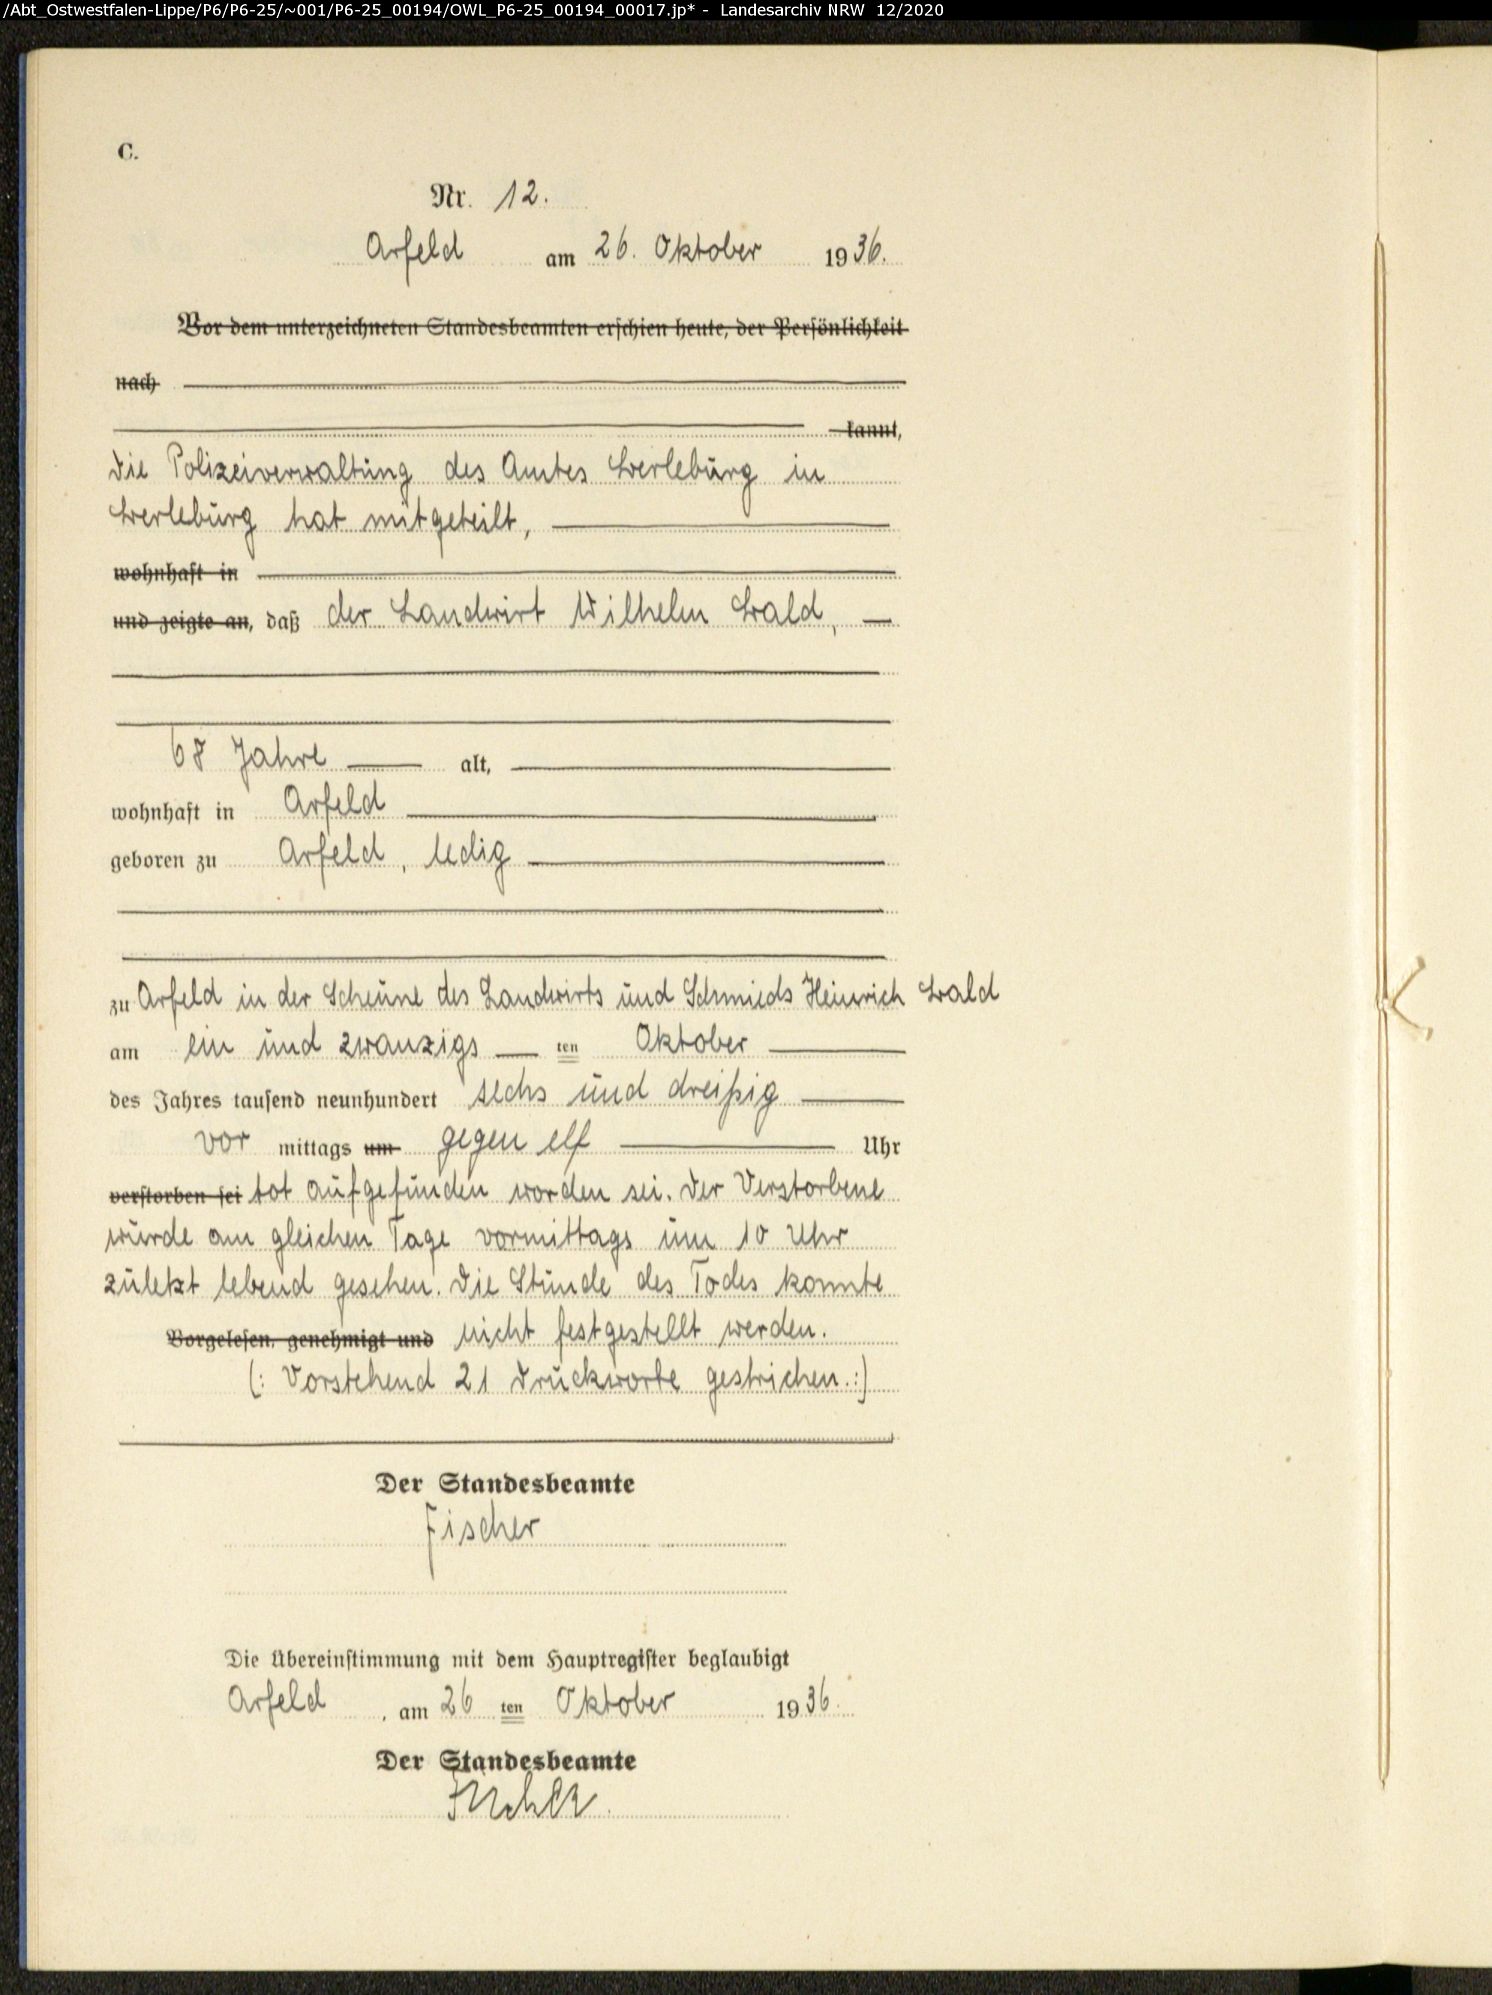 /Abt_Ostwestfalen-Lippe/P6/P6-25/~001/P6-25_00194/OWL_P6-25_00194_00017.jp* - Landesarchiv NRW 12/2020
C.
Nr. 12.
Arfeld am 26. Oktober 1936.
Vor dem unterzeichneten Standesbeamten erschien heute, der Persönlichkeit
nach
kannt,
die Polizeiverwaltung des Amtes Berleburg in
Berleburg hat mitgeteilt,
wohnhaft in
und zeigte an, daß der Landwirt Wilhelm Bald,
68 Jahre alt,
wohnhaft in Arfeld
geboren zu Arfeld, ledig
zu Arfeld in der Scheune des Landwirts und Schmieds Heinrich Bald
am ein und zwanzigs ten Oktober
des Jahres tausend neunhundert sechs und dreißig
vor mittags um gegen elf Uhr
verstorben sei tot aufgefunden worden sei. Der Verstorbene
wurde am gleichen Tage vormittags um 10 Uhr
zuletzt lebend gesehen. Die Stunde des Todes konnte
Vorgelesen, genehmigt und nicht festgestellt werden.
(: Vorstehend 21 Druckworte gestrichen.:)
Der Standesbeamte
Fischer
Die Übereinstimmung mit dem Hauptregister beglaubigt
Arfeld, am 26 ten Oktober 1936.
Der Standesbeamte
Fischer